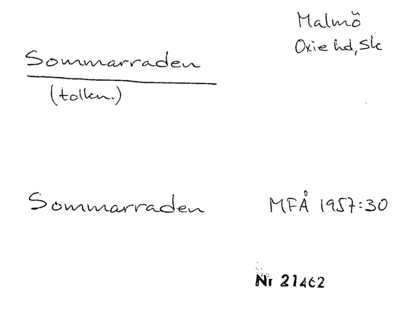 Malmö
Oxie hd, Sk
Sommarraden
(tolkn.)
Sommarraden MFÅ 1957:30
Nr 21462